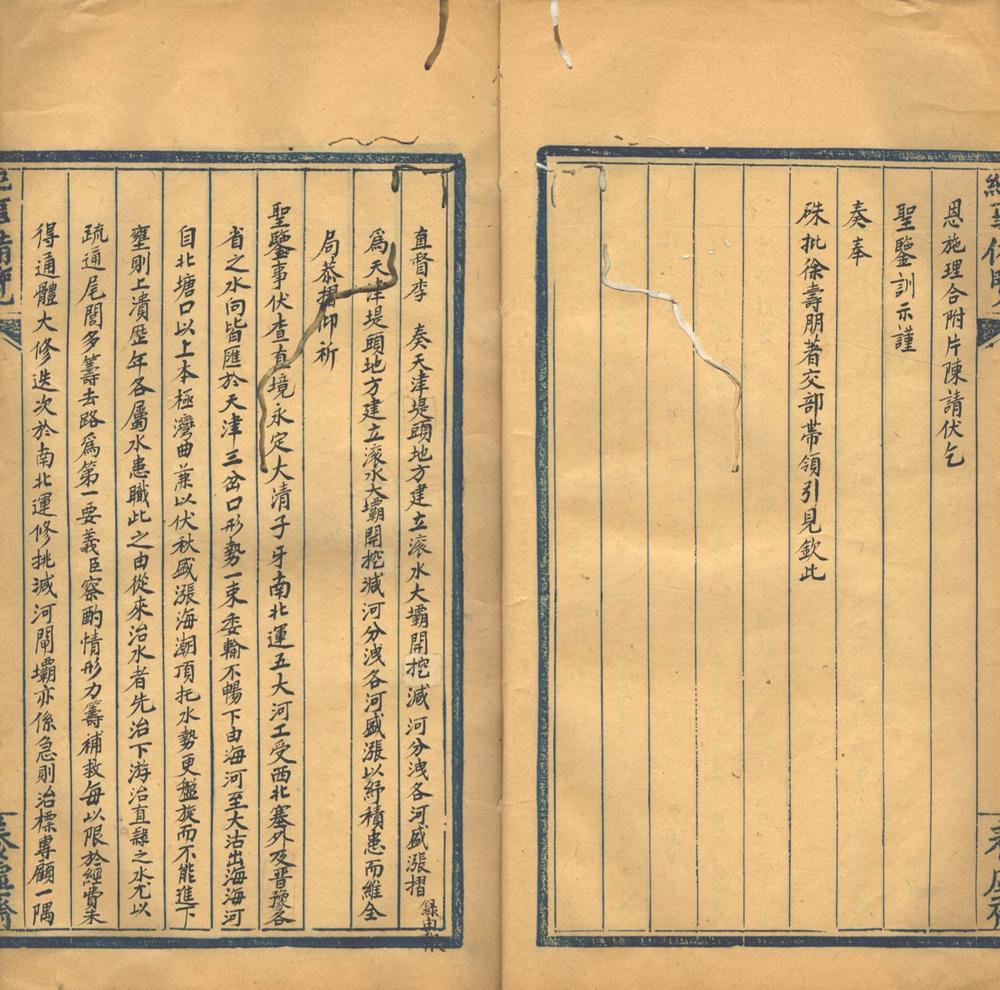 恩施理合附片陳請伏乞
聖鑒訓示謹
奏奉
硃批徐壽朋著交部帶領引見欽此
直督李　奏天津堤頭地方建立滚水大壩開挖減河分洩各河盛漲摺
錄申報
爲天津堤頭地方建立滚水大壩開挖減河分洩各河盛漲以紓積患而維全
局恭摺仰祈
聖鑒事伏查直境永定大清子牙南北運五大河工受西北塞外及晉豫各
省之水向皆匯於天津三岔口形勢一束委輸不暢下由海河至大沽出海海河
自北塘口以上本極灣曲兼以伏秋盛漲海潮頂托水勢更盤旋而不能進下
壅則上潰歷年各屬水患職此之由從來治水者先治下游治直隸之水尤以
疏通尾閭多籌去路爲第一要義臣察酌情形力籌補救每以限於經費未
得通體大修迭次於南北運修挑減河閘壩亦係急則治標專顧一隅